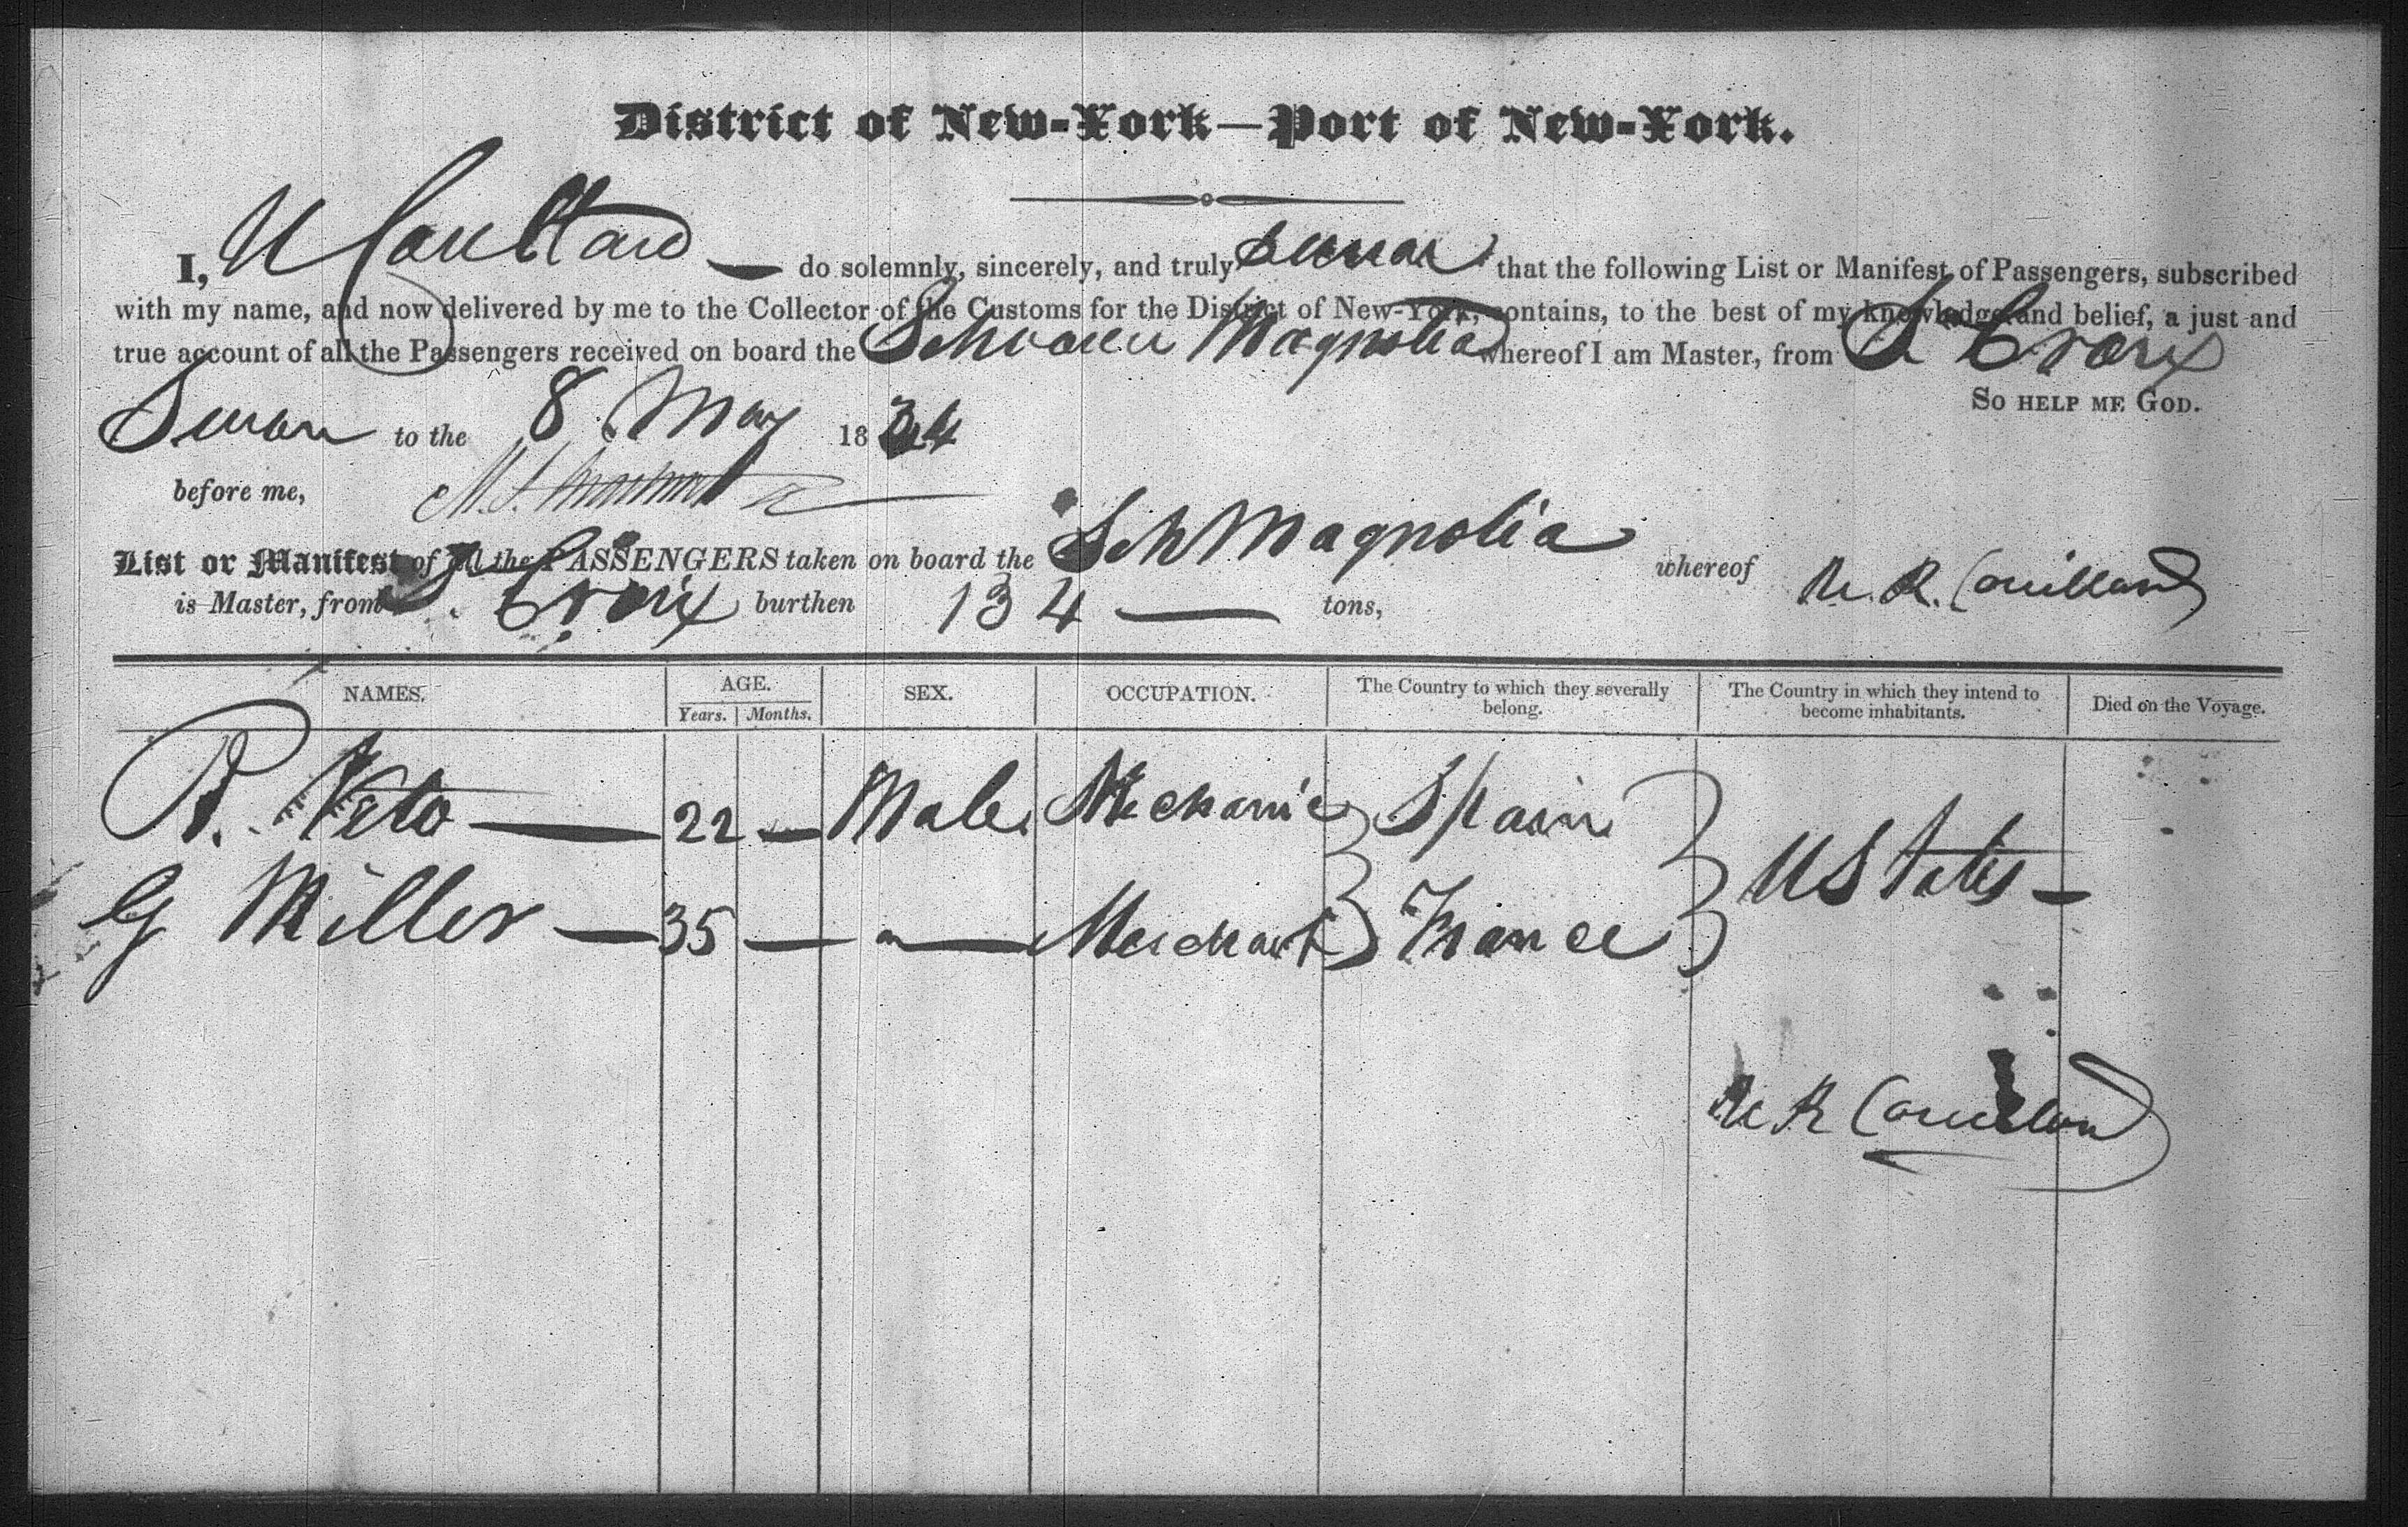 District of New-York—Port of New-York.
I, do solemnly, sincerely, and truly swear that the following List or Manifest of Passengers, subscribed
with my name, and now delivered by me to the Collector of the Customs for the District of New-York, contains, to the best of my knowledge and belief, a just and
true account of all the Passengers received on board the Schooner Magnolia whereof I am Master, from St Croix
So help me God.
Sworn to the 8 May 1834
before me,
List or Manifest of all the PASSENGERS taken on board the Sch Magnolia whereof R. Couillard
is Master, from St. Croix burthen 134 — tons,
NAMES. AGE. Years. Months. SEX. OCCUPATION. The Country to which they severally belong. The Country in which they intend to become inhabitants. Died on the Voyage.
Veto — 22 — Male Mechanic Spain U States —
G Miller — 35 — " — Merchant France
R Couillard